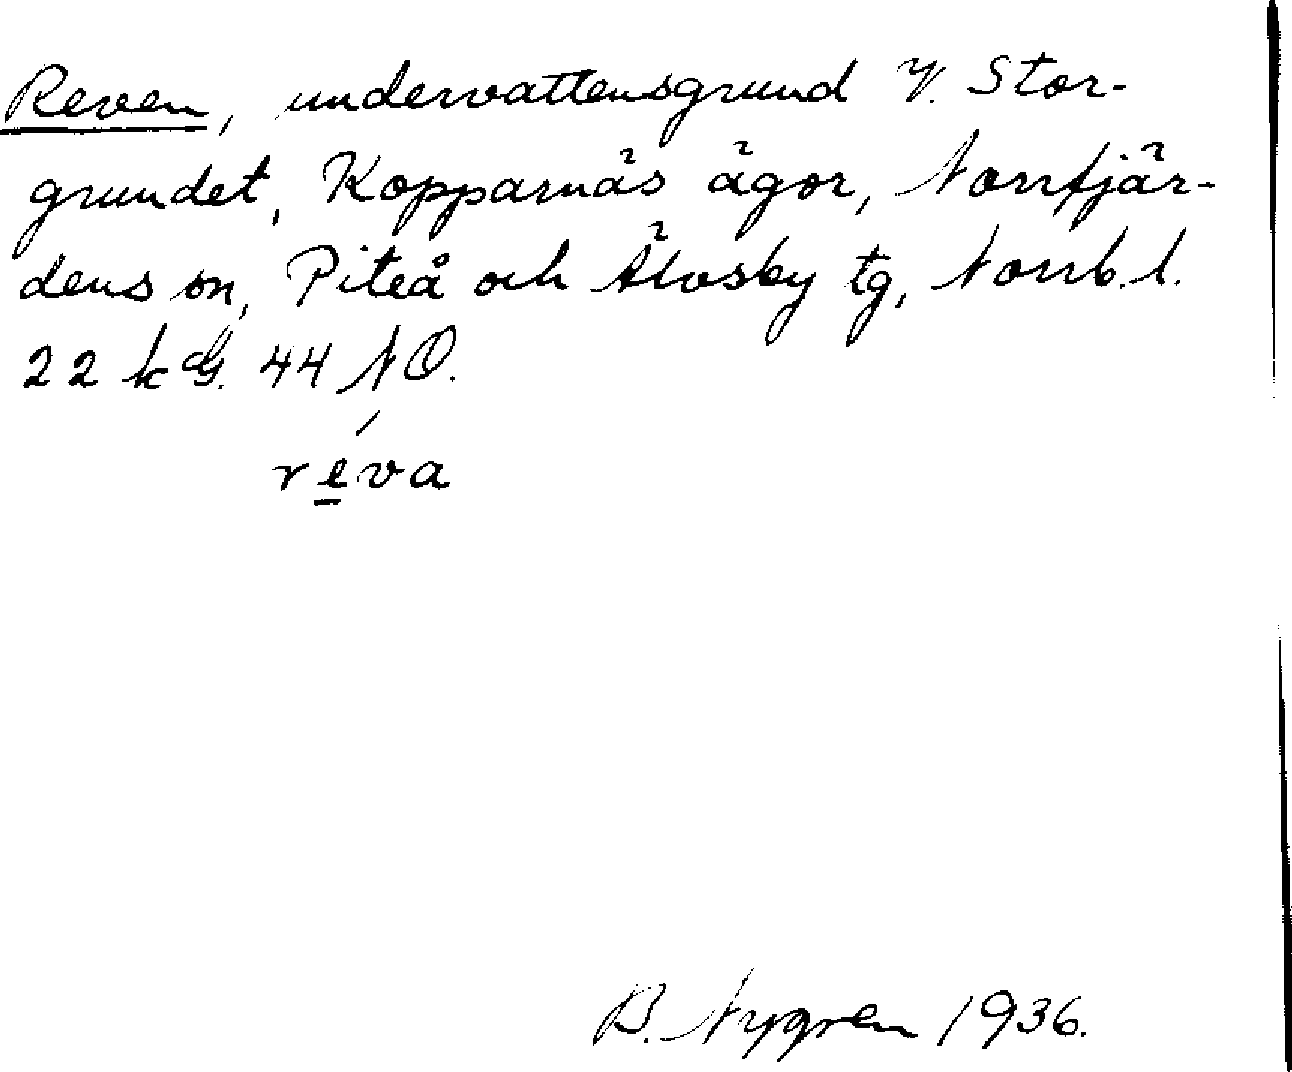 Reven, undervattensgrund V. Stor-
grundet, Kopparnäs ägor, Norrfjär-
dens sn, Piteå och Älvsby tg, Norrb. l.
22 k 44 NO.
réva
B. Nygren 1936.